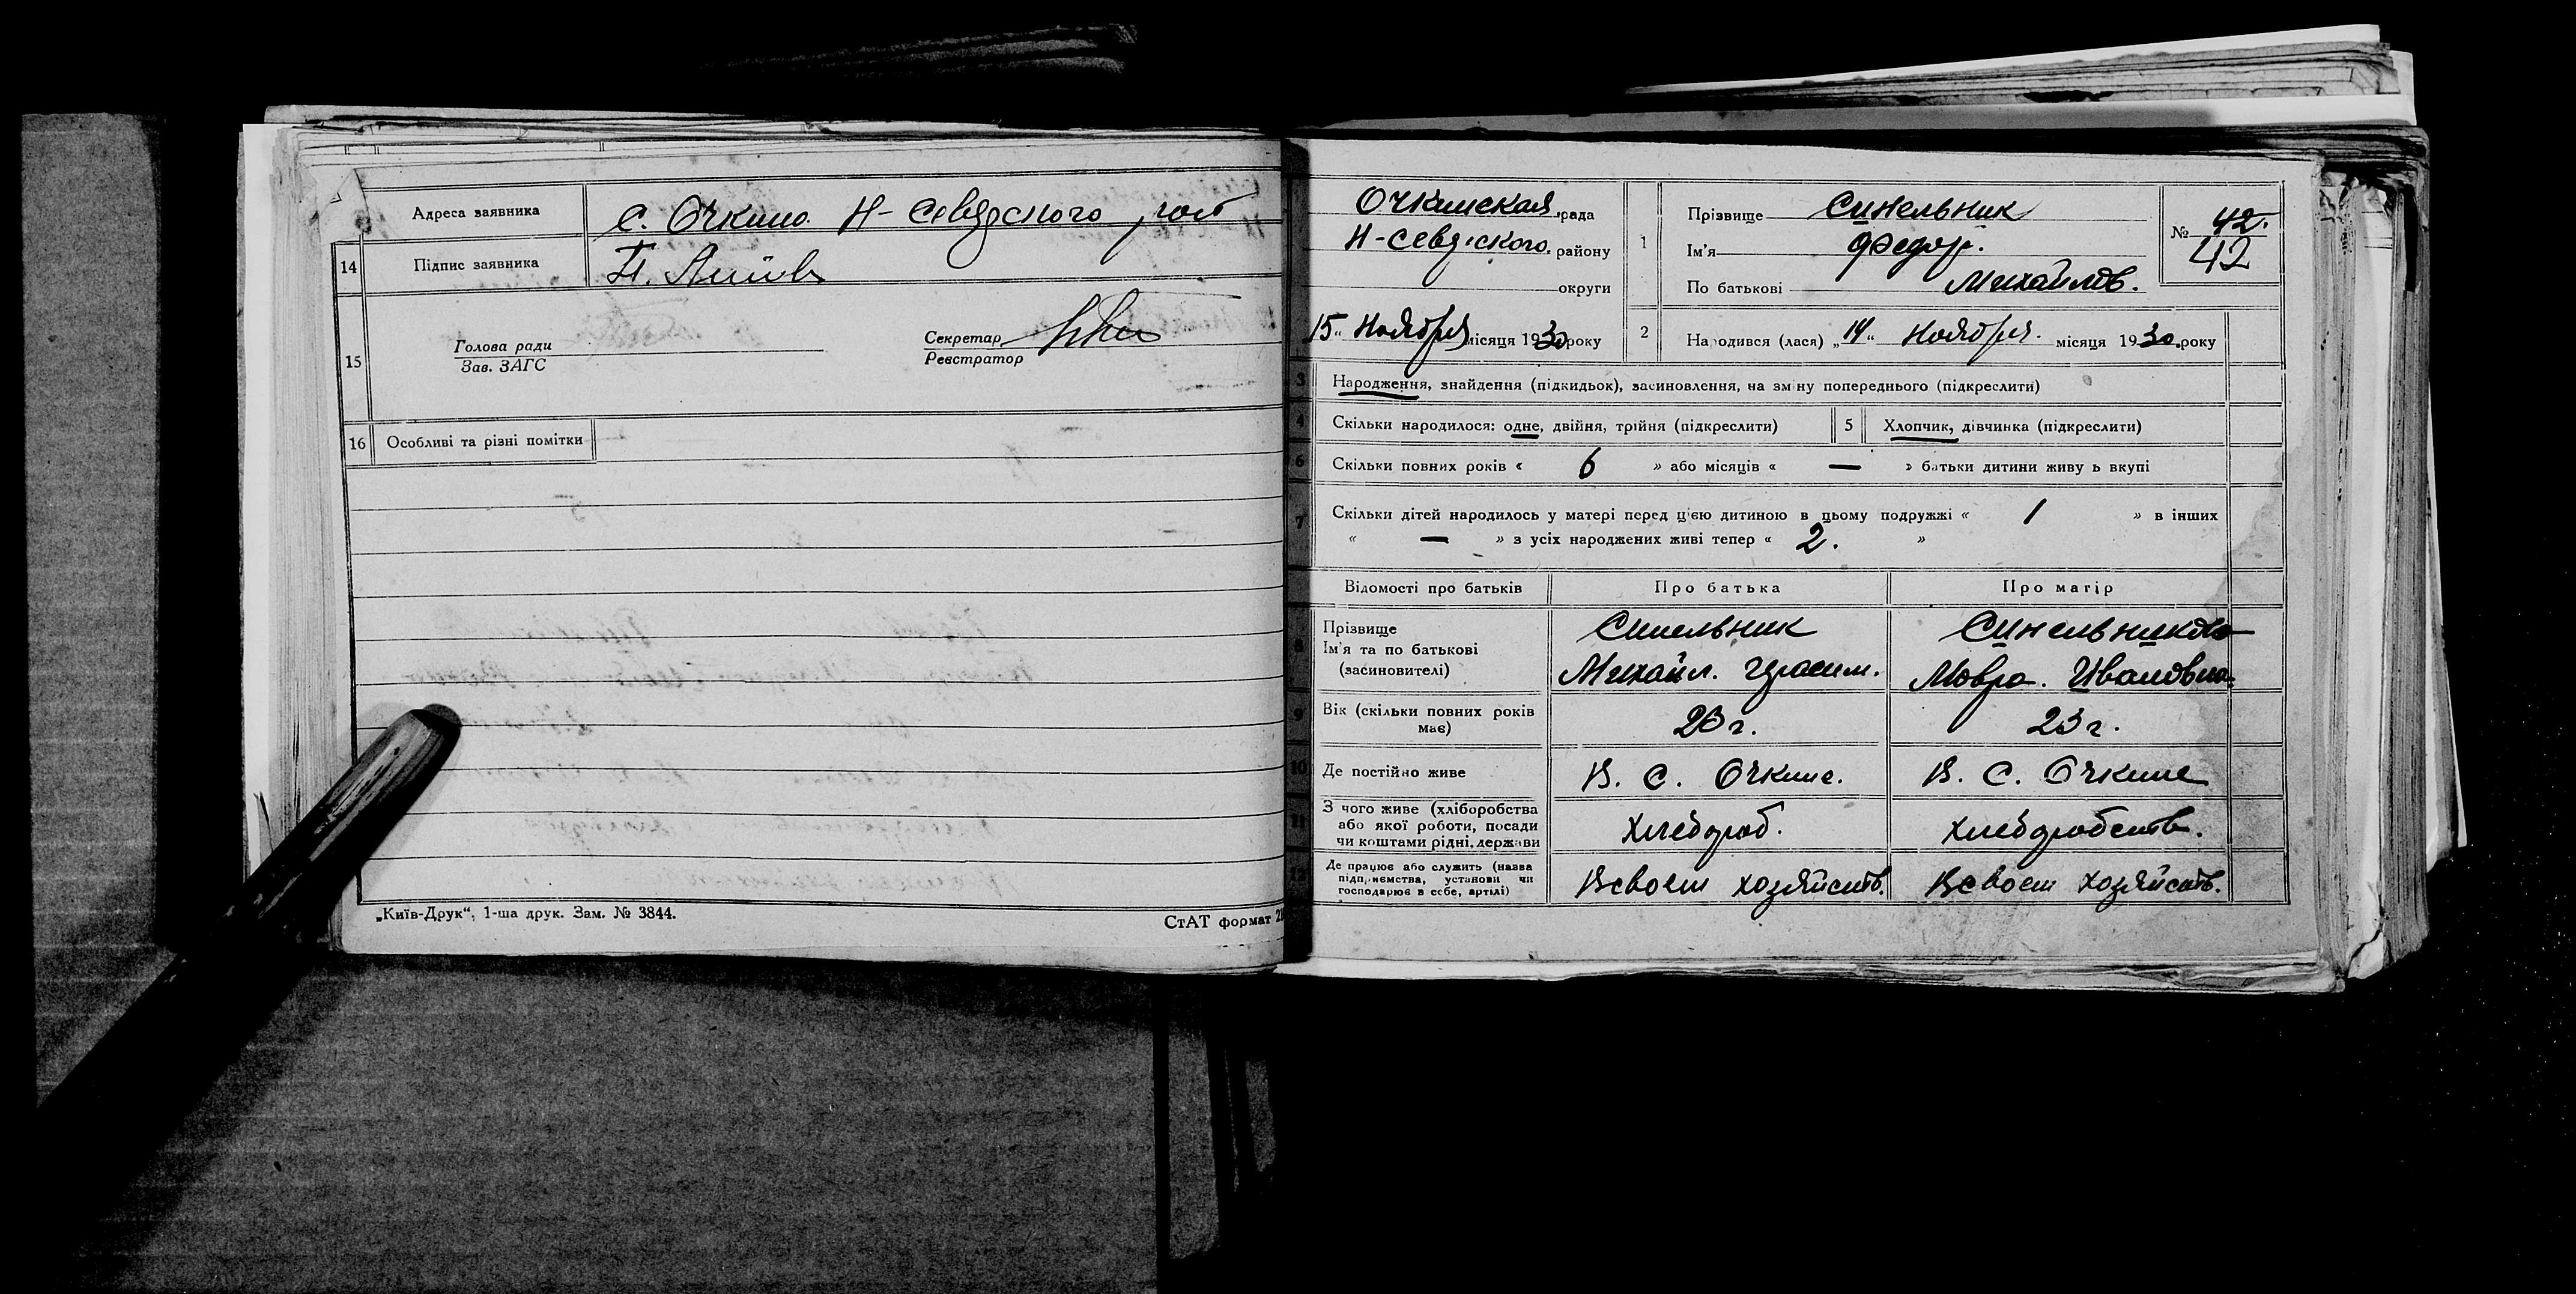 Адреса заявника с. Очкино Н-Севдского
14 Підпис заявника
15 Голова ради
Зав. ЗАГС
Секретар
Реєстратор
16 Особливі та різні помітки
„Київ-Друк“, 1-ша друк. Зам. № 3844.
СтАТ формат
Очкинская рада
Н-Севдского району
округи
15 " Ноября місяця 1930 року
1 Прізвище Синельник
Ім'я Федор.
По батькові Михайлов.
№ 42.
42
2 Народився (лася) „14" Ноября. місяця 1930. року
3 Народження, знайдення (підкидьок), засиновлення, на зміну попереднього (підкреслити)
4 Скільки народилося: одне, двійня, трійня (підкреслити) 5 Хлопчик, дівчинка (підкреслити)
6 Скільки повних років « 6 » або місяців « — » батьки дитини живуть вкупі
7 Скільки дітей народилось у матері перед цією дитиною в цьому подружжі « 1 » в інших
« — » з усіх народжених живі тепер « 2. »
Відомості про батьків Про батька Про матір
8 Прізвище
Ім'я та по батькові
(засиновителі)
Синельник
Михайл. Герасим.
Синельникова
Мавра. Ивановна.
9 Вік (скільки повних років
має)
23г.
10 Де постійно живе В. С. Очкине. В. С. Очкине
11 З чого живе (хліборобства
або якої роботи, посади
чи коштами рідні, держави
хлебороб.
хлеборобств.
12 Де працює або служить (назва
підприємства, установи чи
господарює в себе, артілі)
В своем хозяйств.
В своем хозяйств.